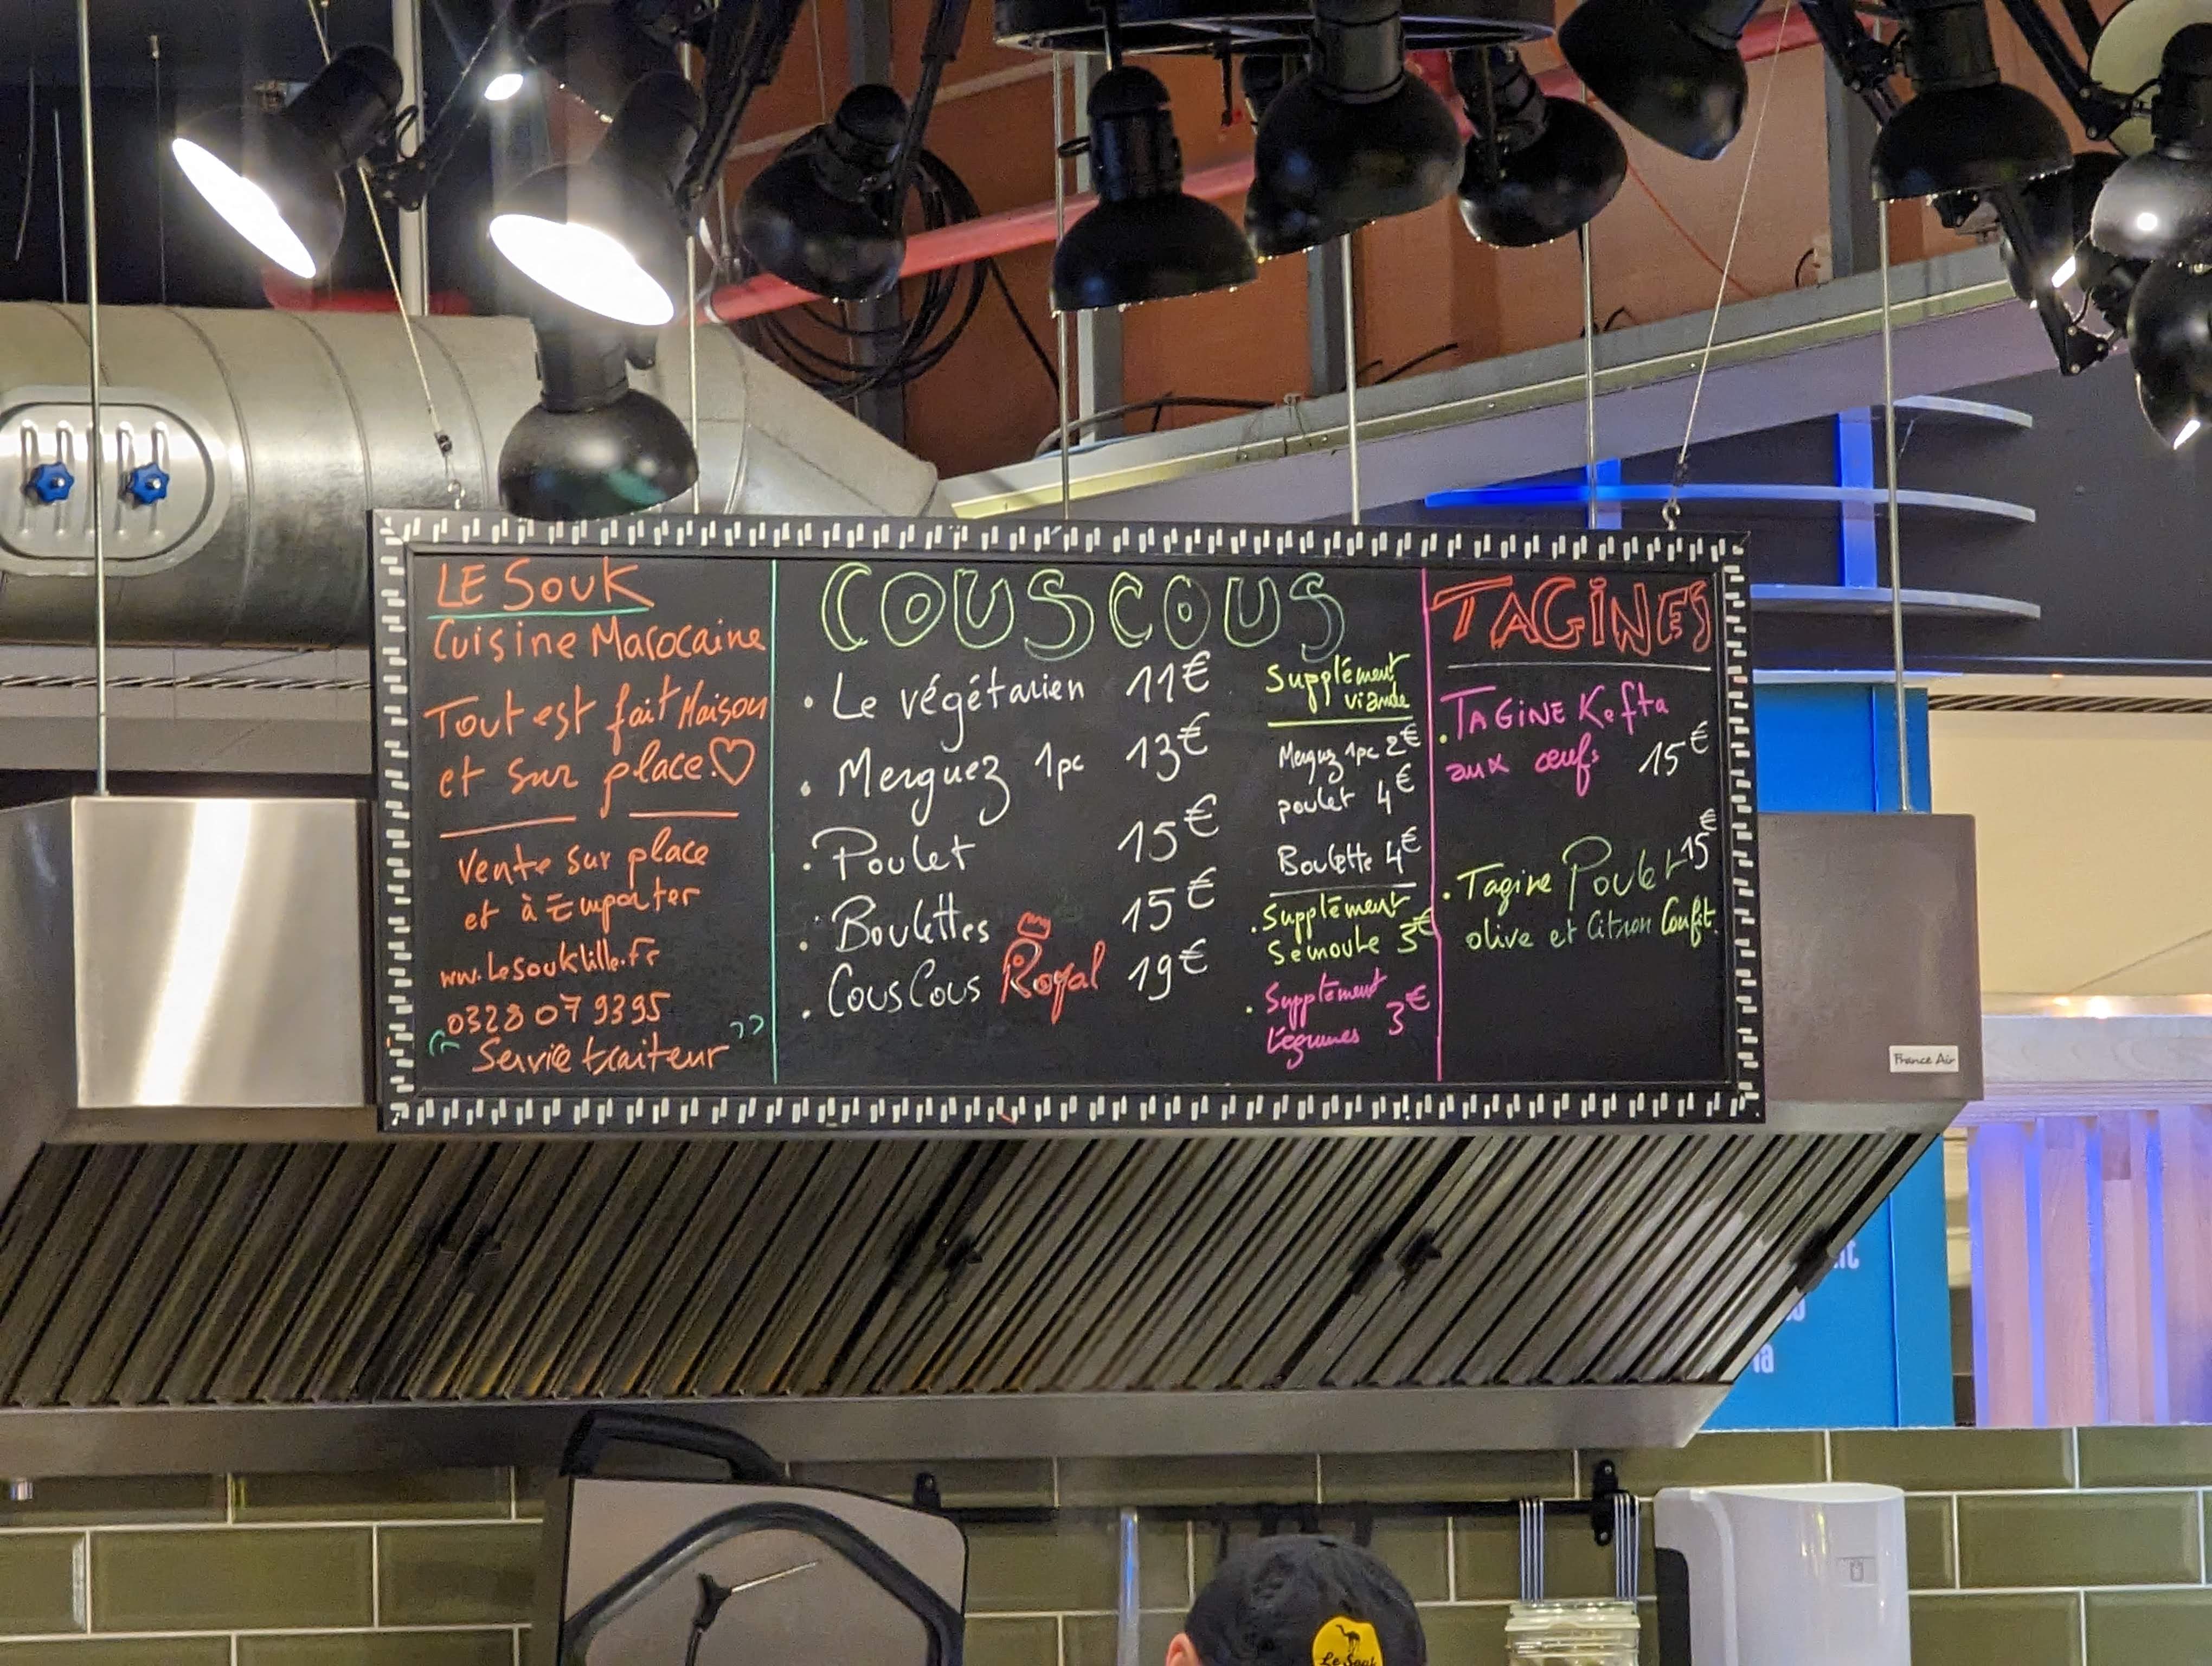 LE SOUK
Cuisine Marocaine
Tout est fait Maison
et sur place.♡
Vente sur place
et à Emporter
www.lesouklille.fr
0328 07 9395
“ Service traiteur ”
COUSCOUS
. Le végétarien 11€
. Merguez 1pc 13€
. Poulet 15€
. Boulettes 15€
. CousCous Royal 19€
Supplément
viande
Merguez 1pc 2€
poulet 4€
Boulette 4€
. Supplément
Semoule 3€
. Supplément
légumes 3€
TAGINES
. TAGINE Kefta
aux œufs 15€
. Tagine Poulet 15€
olive et Citron Confit
France Air
Le Souk